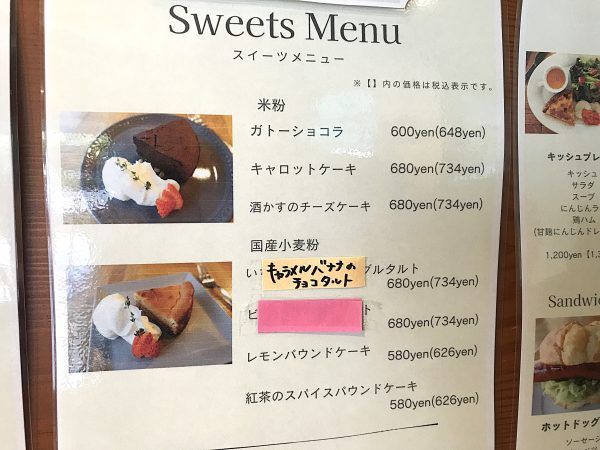 Sweets Menu
スイーツメニュー
※【】内の価格は税込表示です。
米粉
ガトーショコラ 600yen(648yen)
キャロットケーキ 680yen(734yen)
酒かすのチーズケーキ 680yen(734yen)
国産小麦粉
キャラメルバナナの
チョコタルト
グルタルト
680yen(734yen)
ト
680yen(734yen)
レモンパウンドケーキ 580yen(626yen)
紅茶のスパイスパウンドケーキ
580yen(626yen)
キッシュプレ
キッシュ
サラダ
スープ
にんじんラ
鶏ハム
(甘麹にんじんドレ
1,200yen【1,3
Sandwic
ホットドッグ
ソーセージ